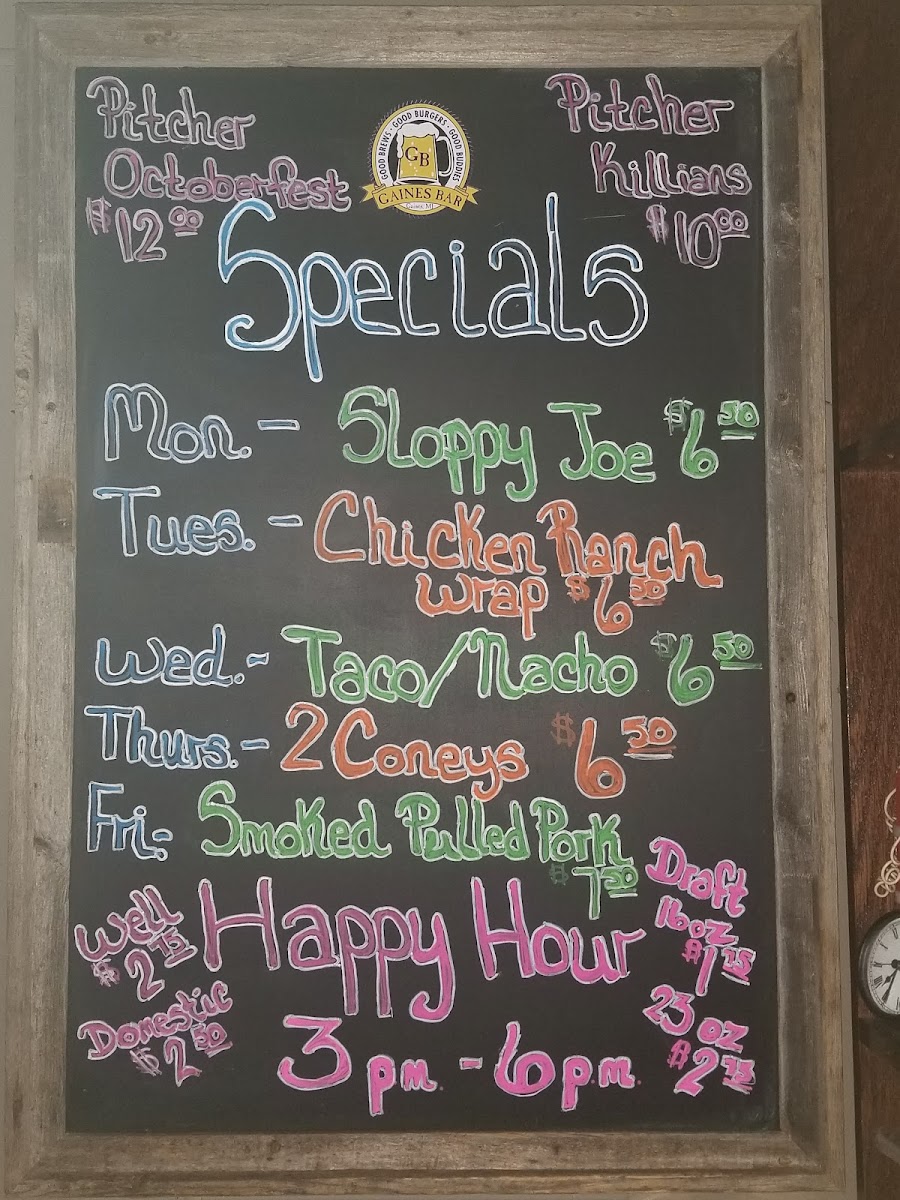 Pitcher
Octoberfest
$12.00
GOOD BREWS · GOOD BURGERS · GOOD BUDDIES
GB
GAINES BAR
Gaines, MI
Pitcher
Killians
$10.00
Specials
Mon. - Sloppy Joe $6 50
Tues. - Chicken Ranch
Wrap $6 50
Wed. - Taco/Nacho $6 50
Thurs. - 2 Coneys $6 50
Fri. - Smoked Pulled Pork
$7 50
Well
$2 75
Domestic
$2 50
Happy Hour
3 pm. - 6 p.m.
Draft
16 oz
$1 75
23 oz
$2 75